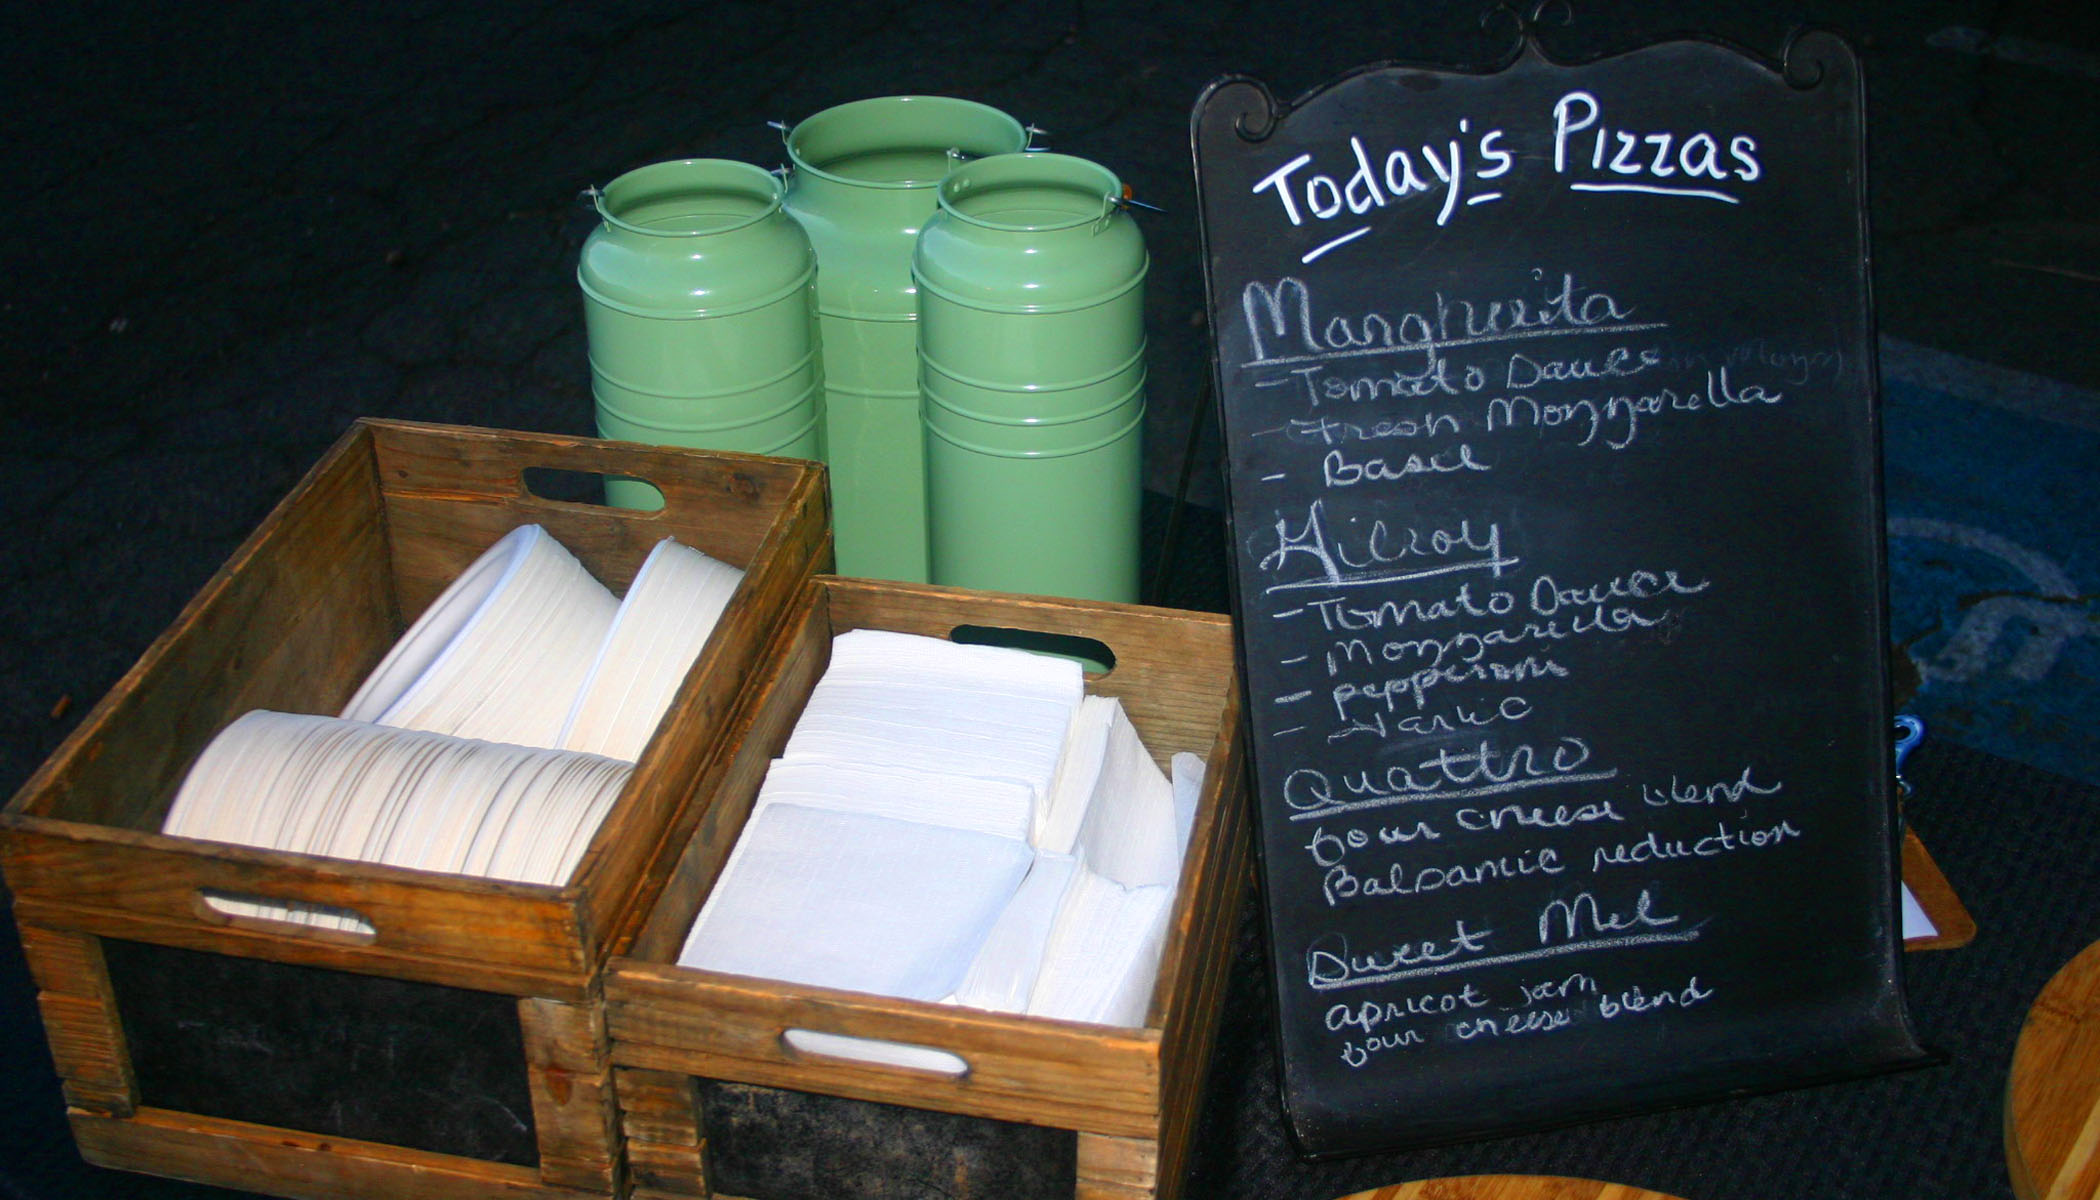 Today's Pizzas
Margherita
- Tomato Sauce
- Fresh Mozzarella
- Basil
Gilroy
- Tomato Sauce
- Mozzarella
- Pepperoni
- Garlic
Quattro
four cheese blend
Balsamic reduction
Sweet Mel
apricot jam
four cheese blend